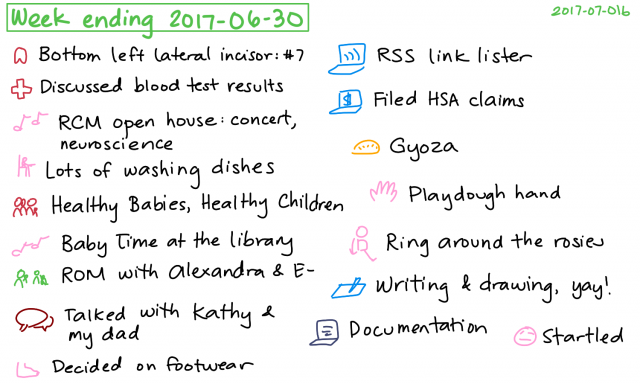 Week ending 2017-06-30
2017-07-01b
Bottom left lateral incisor: #7
Discussed blood test results
RCM open house: concert,
neuroscience
Lots of washing dishes
Healthy Babies, Healthy Children
Baby Time at the library
ROM with Alexandra & E-
Talked with Kathy &
my dad
Decided on footwear
RSS link lister
$ Filed HSA claims
Gyoza
Playdough hand
Ring around the rosies
Writing & drawing, yay!
Documentation
Startled